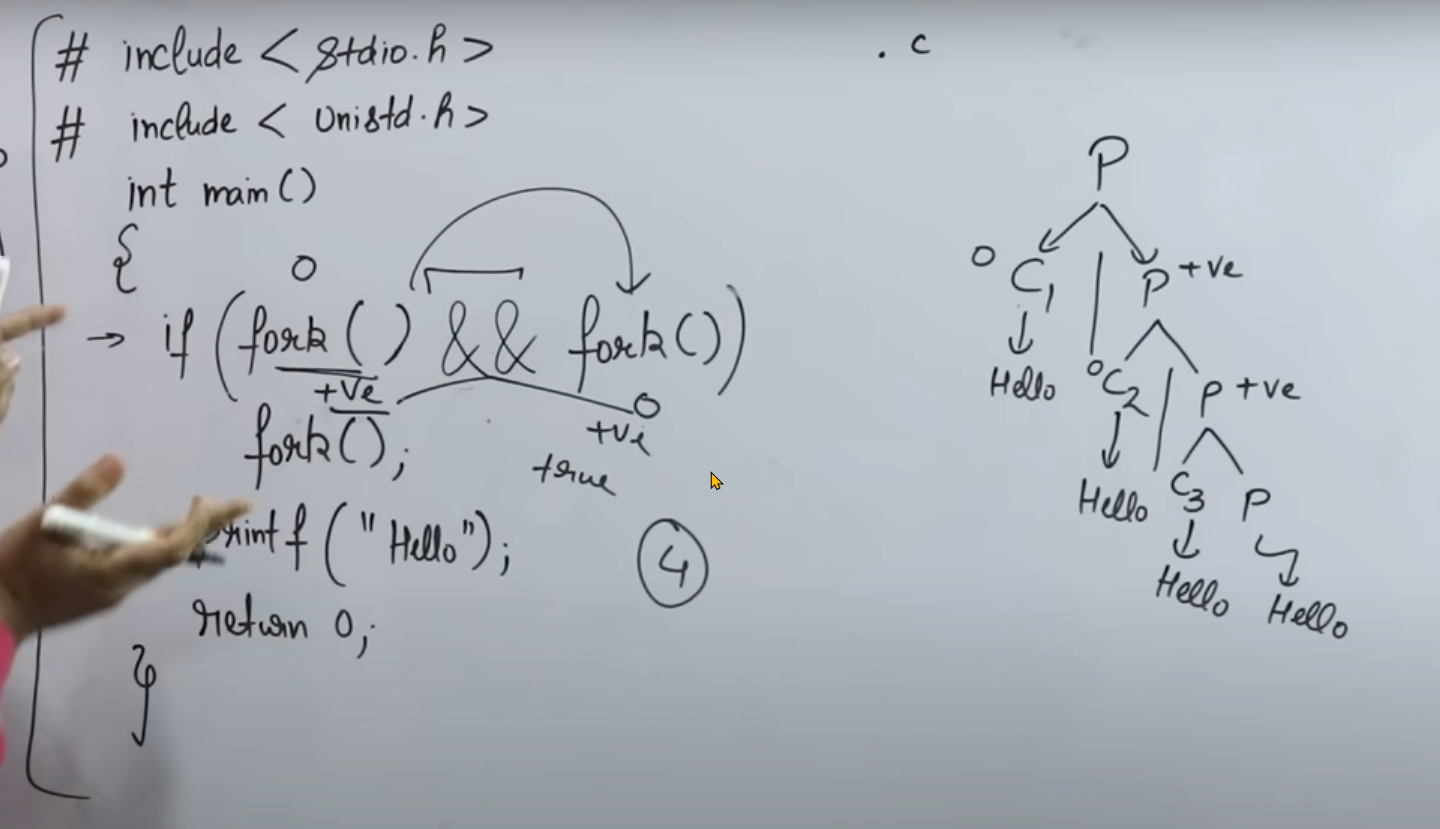 # include < stdio.h >
# include < unistd.h >
int main()
{
0
if (fork() && fork())
+ve
0
+ve
true
fork();
printf("Hello");
4
return 0;
}
. c
P
0 C1 P +ve
Hello
0 C2 P +ve
Hello
C3 P
Hello Hello